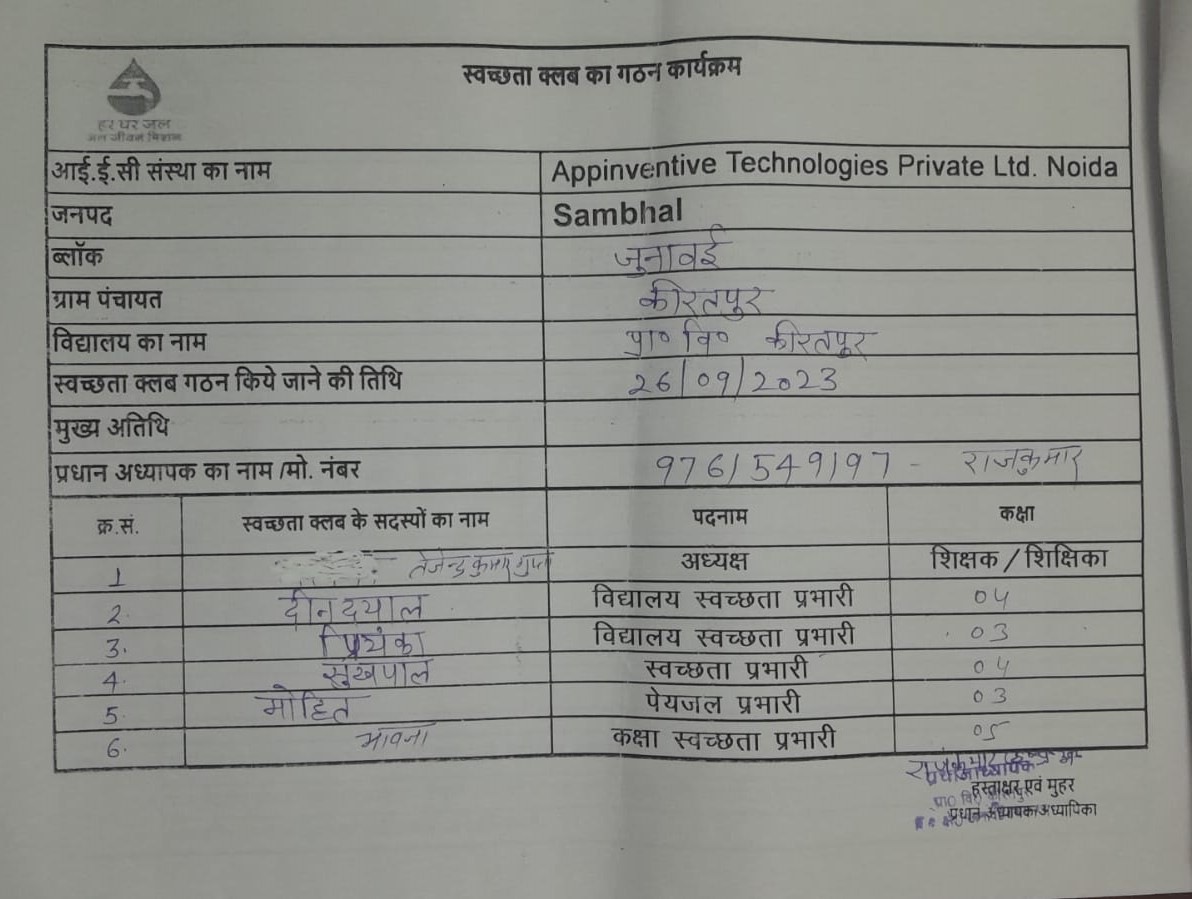 स्वच्छता क्लब का गठन कार्यक्रम
हर घर जल
जल जीवन मिशन
आई.ई.सी संस्था का नाम Appinventive Technologies Private Ltd. Noida
जनपद Sambhal
ब्लॉक जूनावई
ग्राम पंचायत कीरतपुर
विद्यालय का नाम प्रा० वि० कीरतपुर
स्वच्छता क्लब गठन किये जाने की तिथि 26/09/2023
मुख्य अतिथि
प्रधान अध्यापक का नाम /मो. नंबर 9761549197 - राजकुमार
क्र.सं. स्वच्छता क्लब के सदस्यों का नाम पदनाम कक्षा
1 तेजेन्द्र कुमार गुप्ता अध्यक्ष शिक्षक / शिक्षिका
2. दीनदयाल विद्यालय स्वच्छता प्रभारी 04
3. प्रियंका विद्यालय स्वच्छता प्रभारी 03
4. सुखपाल स्वच्छता प्रभारी 04
5. मोहित पेयजल प्रभारी 03
6. भावना कक्षा स्वच्छता प्रभारी 05
राजकुमार
प्रधानाध्यापक
हस्ताक्षर एवं मुहर
प्रा० वि० कीरतपुर
प्रधान अध्यापक/अध्यापिका